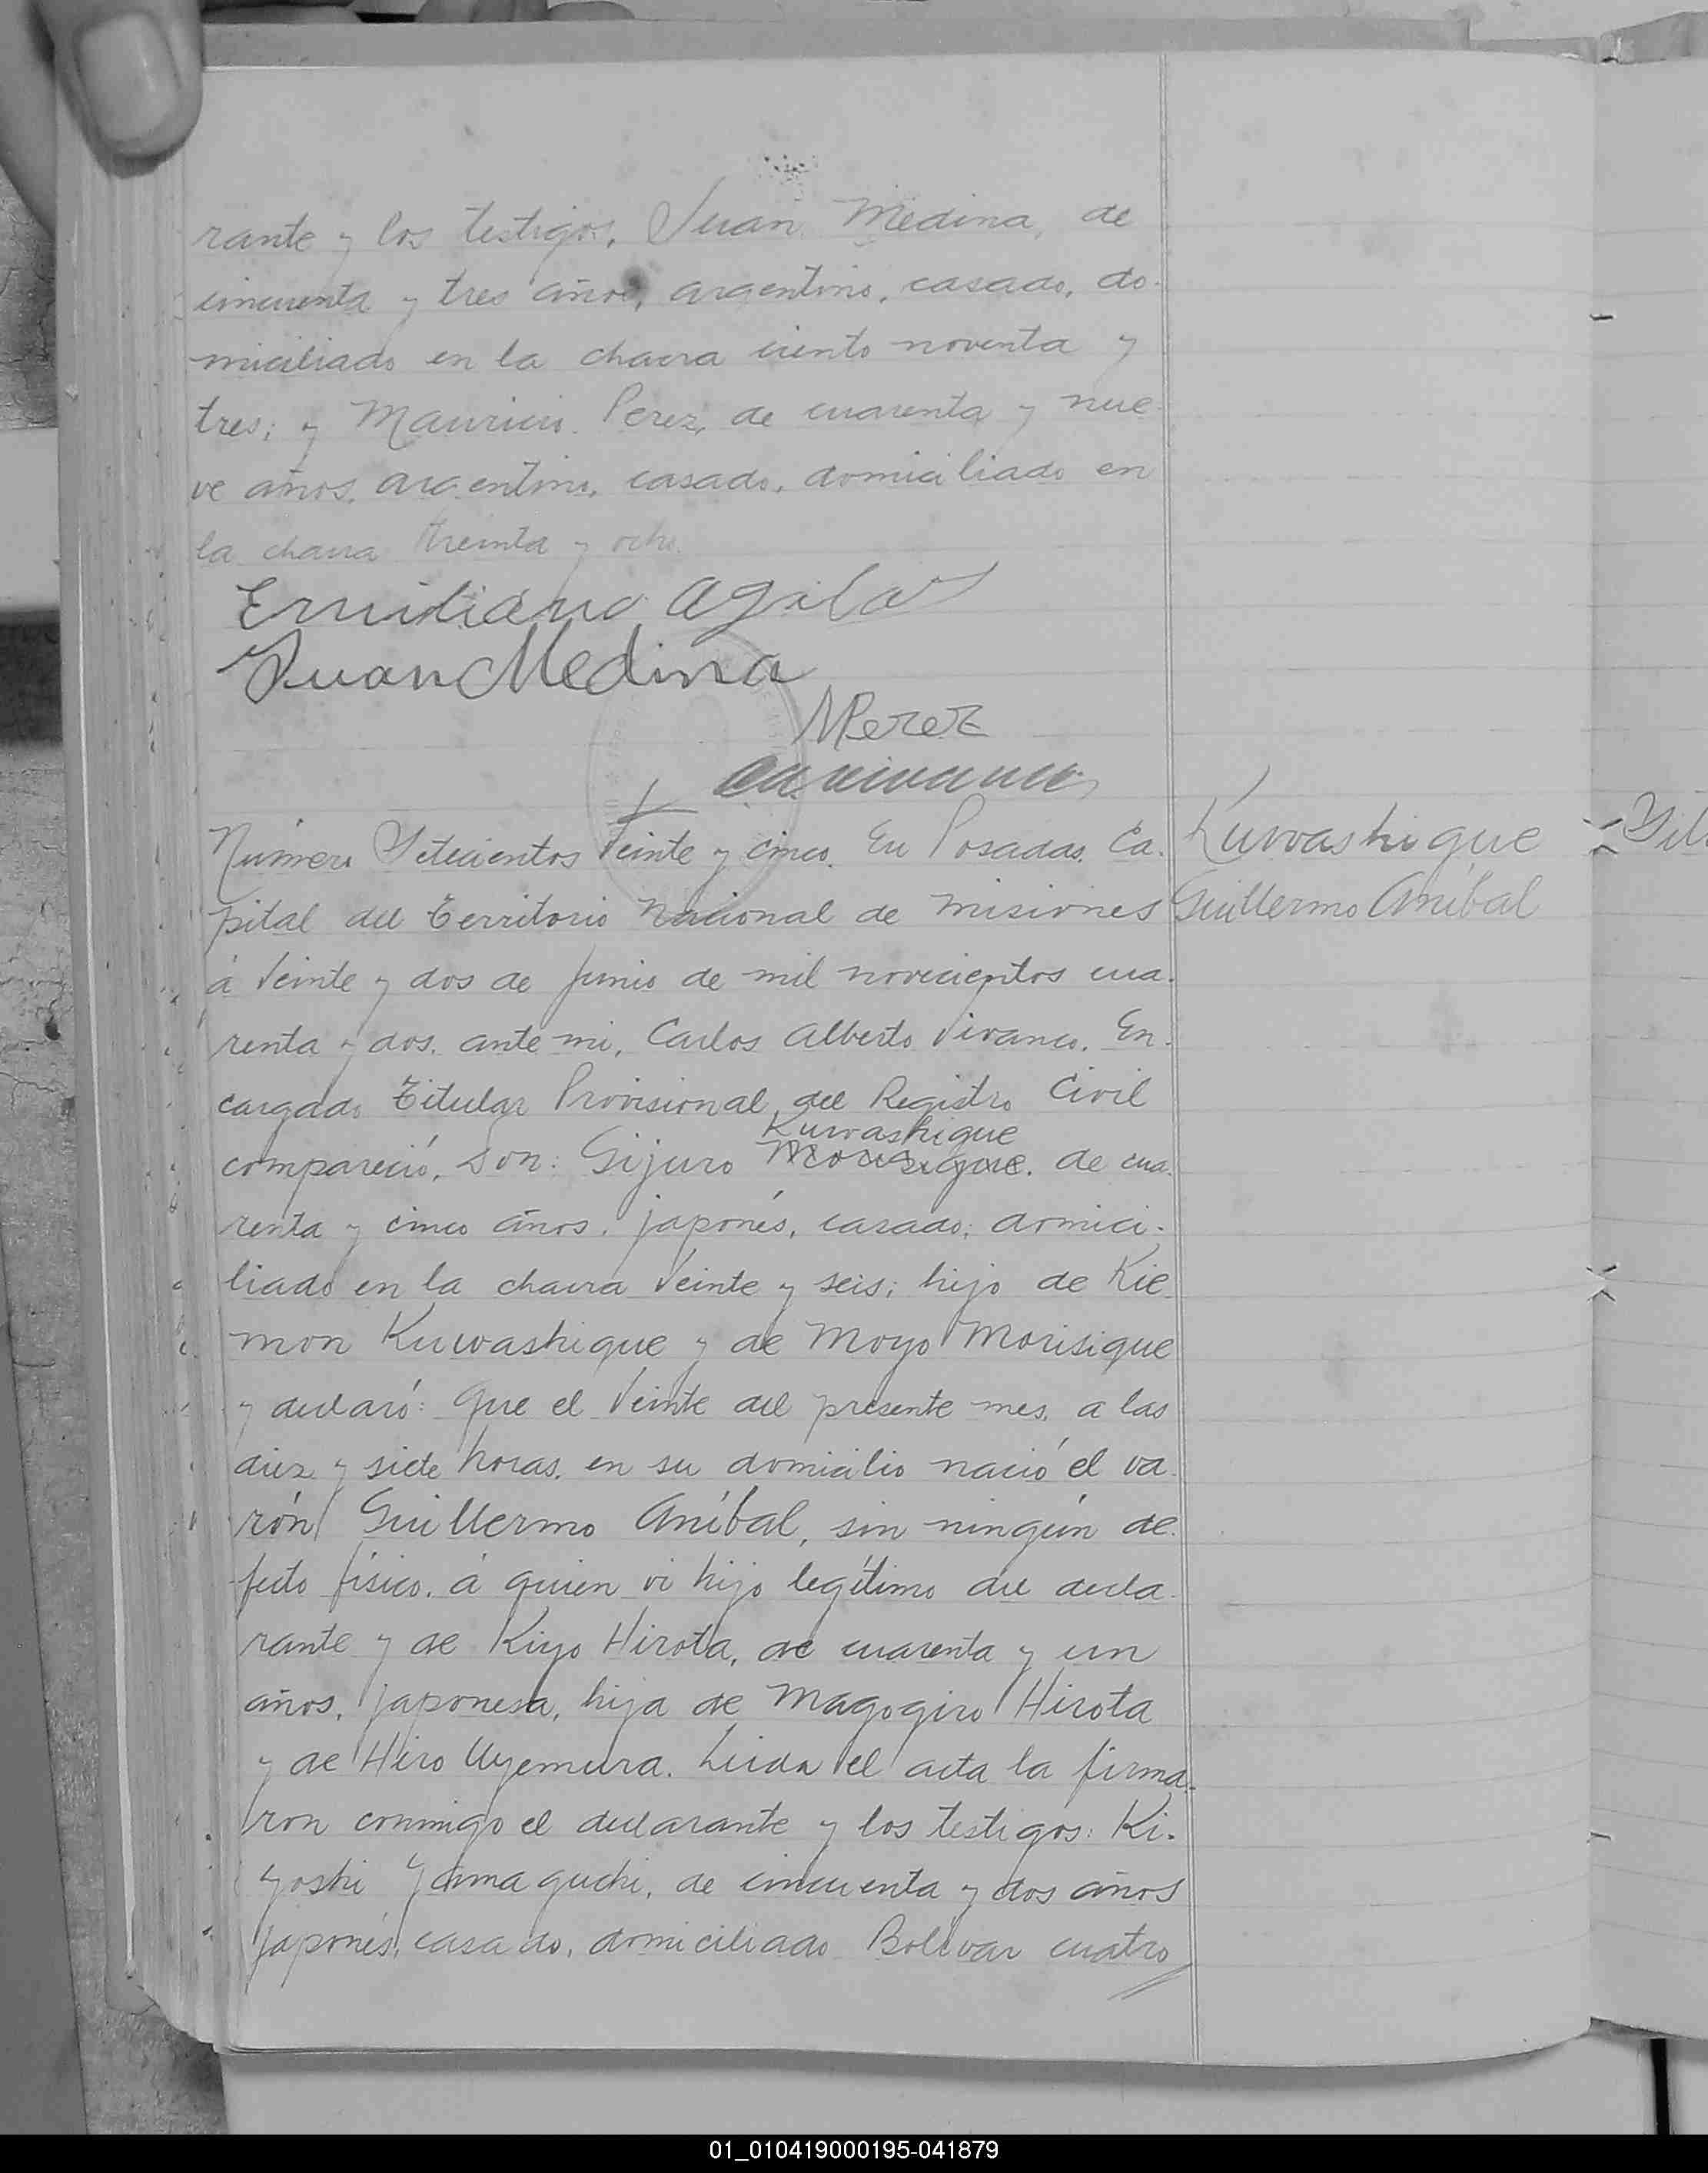 rante y los testigos, Juan Medina, de
cincuenta y tres años, argentino, casado, do-
miciliado en la chacra ciento noventa y
tres; y Mauricio Perez, de cuarenta y nue-
ve años, argentino, casado, domiciliado en
la chacra treinta y ocho.
Juan Medina
MPerez
Número Setecientos Veinte y cinco. En Posadas, Ca-
pital del Territorio Nacional de Misiones
á Veinte y dos de Junio de mil novecientos cua-
renta y dos, ante mi, Carlos Alberto Vivanco, En-
cargado Titular Provisional del Registro Civil
Kuwashigue
compareció, Don: Gijuro Morisigue, de cua-
renta y cinco años, japonés, casado, domici-
liado en la chacra Veinte y seis; hijo de Kie-
mon Kuwashigue y de Moyo Morisigue
y declaró: Que el Veinte del presente mes, a las
diez y siete horas, en su domicilio nació el va-
rón Guillermo Aníbal, sin ningún de-
fecto físico, á quien vi hijo legítimo del decla-
rante y de Kiyo Hirota, de cuarenta y un
años, japonesa, hija de Magogiro Hirota
y de Hiro Uyemura. Leida el acta la firma-
ron conmigo el declarante y los testigos: Ki-
yoshi Yamaguchi, de cincuenta y dos años
japonés, casado, domiciliado Bolívar cuatro
Kuwashigue
Guillermo Aníbal
01_010419000195-041879